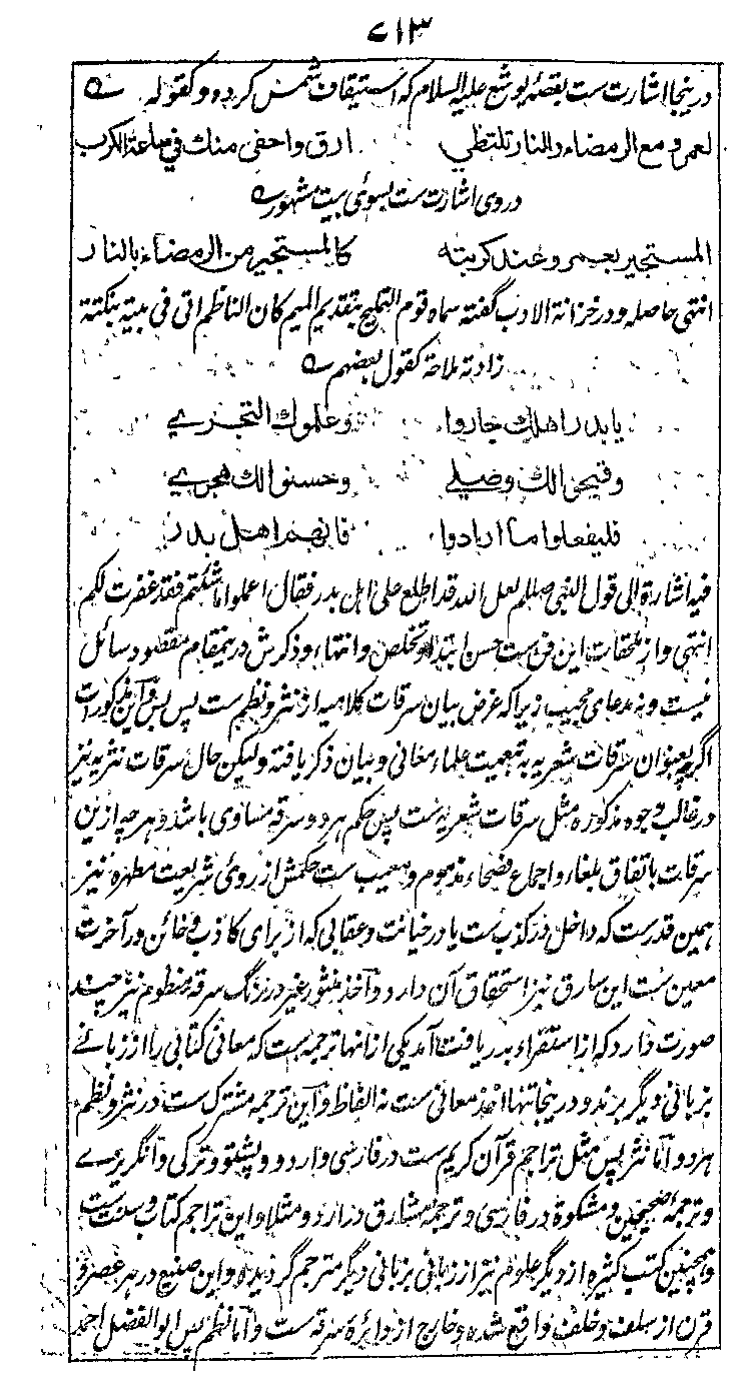 ٧١٣
درینجا اشارت ست بقصۀ یوشع علیه السلام که استیقاف شمس کرده و کقوله
لعمرو مع الرمضاء والنار تلتظي ارق واحفى منك في ساعة الكرب
دروی اشارت ست بسوئی بیت مشهور
المستجير بعمرو عند كربته كالمستجير من الرمضاء بالنار
انتهی حاصله و در خزانة الادب گفته سماه قوم التملیح بتقدیم المیم کان الناظم اتی فی بیته بنکتة
زادته ملاحة کقول بعضهم
يا بدر اهلك جاروا وعلموك التجري
وقبحوا لك وصلي وحسنوا لك هجري
فليفعلوا ما ارادوا فانهم اهل بدر
فیه اشارة الی قول النبی صلعم لعل الله قد اطلع علی اهل بدر فقال اعملوا ما شئتم فقد غفرت لکم
انتهی و از ملحقات این فن ست حسن ابتدا و تخلص و انتهاء و ذکرش درینمقام مقصود سائل
نیست و نه مدعای مجیب زیرا که غرض بیان سرقات کلامیه از نثر و نظم ست پس این مذکورات
اگرچه بعنوان سرقات شعریه به تبعیت علماء معانی و بیان ذکر یافته و لیکن حال سرقات نثریه نیز
در غالب وجوه مذکوره مثل سرقات شعریه ست پس حکم هر دو سرقه مساوی باشد و هر چه ازین
سرقات باتفاق بلغاء و اجماع فصحاء مذموم و معیب ست حکمش از روئ شریعت مطهره نیز
همین قدرست که داخل در کذب ست یا در خیانت و عقابی که از برای کاذب و خائن در آخرت
معین ست این سارق نیز استحقاق آن دارد و آخذ منثور غیر در رنگ سرقه منظوم نیز چند
صورت دارد که از استقراء بدریافت آمد یکی ازانها ترجمه ست که معانی کتابی را از زبانے
بزبانی دیگر برند و درینجا تنها اخذ معانی ست نه الفاظ و این ترجمه مشترک ست در نثر و نظم
هر دو اما نثر پس مثل تراجم قرآن کریم ست در فارسی و اردو و پشتو و ترکی و انگریزے
و ترجمه صحیحین و مشکوة در فارسی و ترجمه مشارق در اردو مثلا و این تراجم کتاب و سنت ست
و همچنین کتب کثیره از دیگر علوم نیز از زبانی بزبانی دیگر مترجم گردیده و این صنیع در هر عصر و
قرن از سلف و خلف واقع شده و خارج از دائرۀ سرقه ست و اما نظم پس ابوالفضل احمد